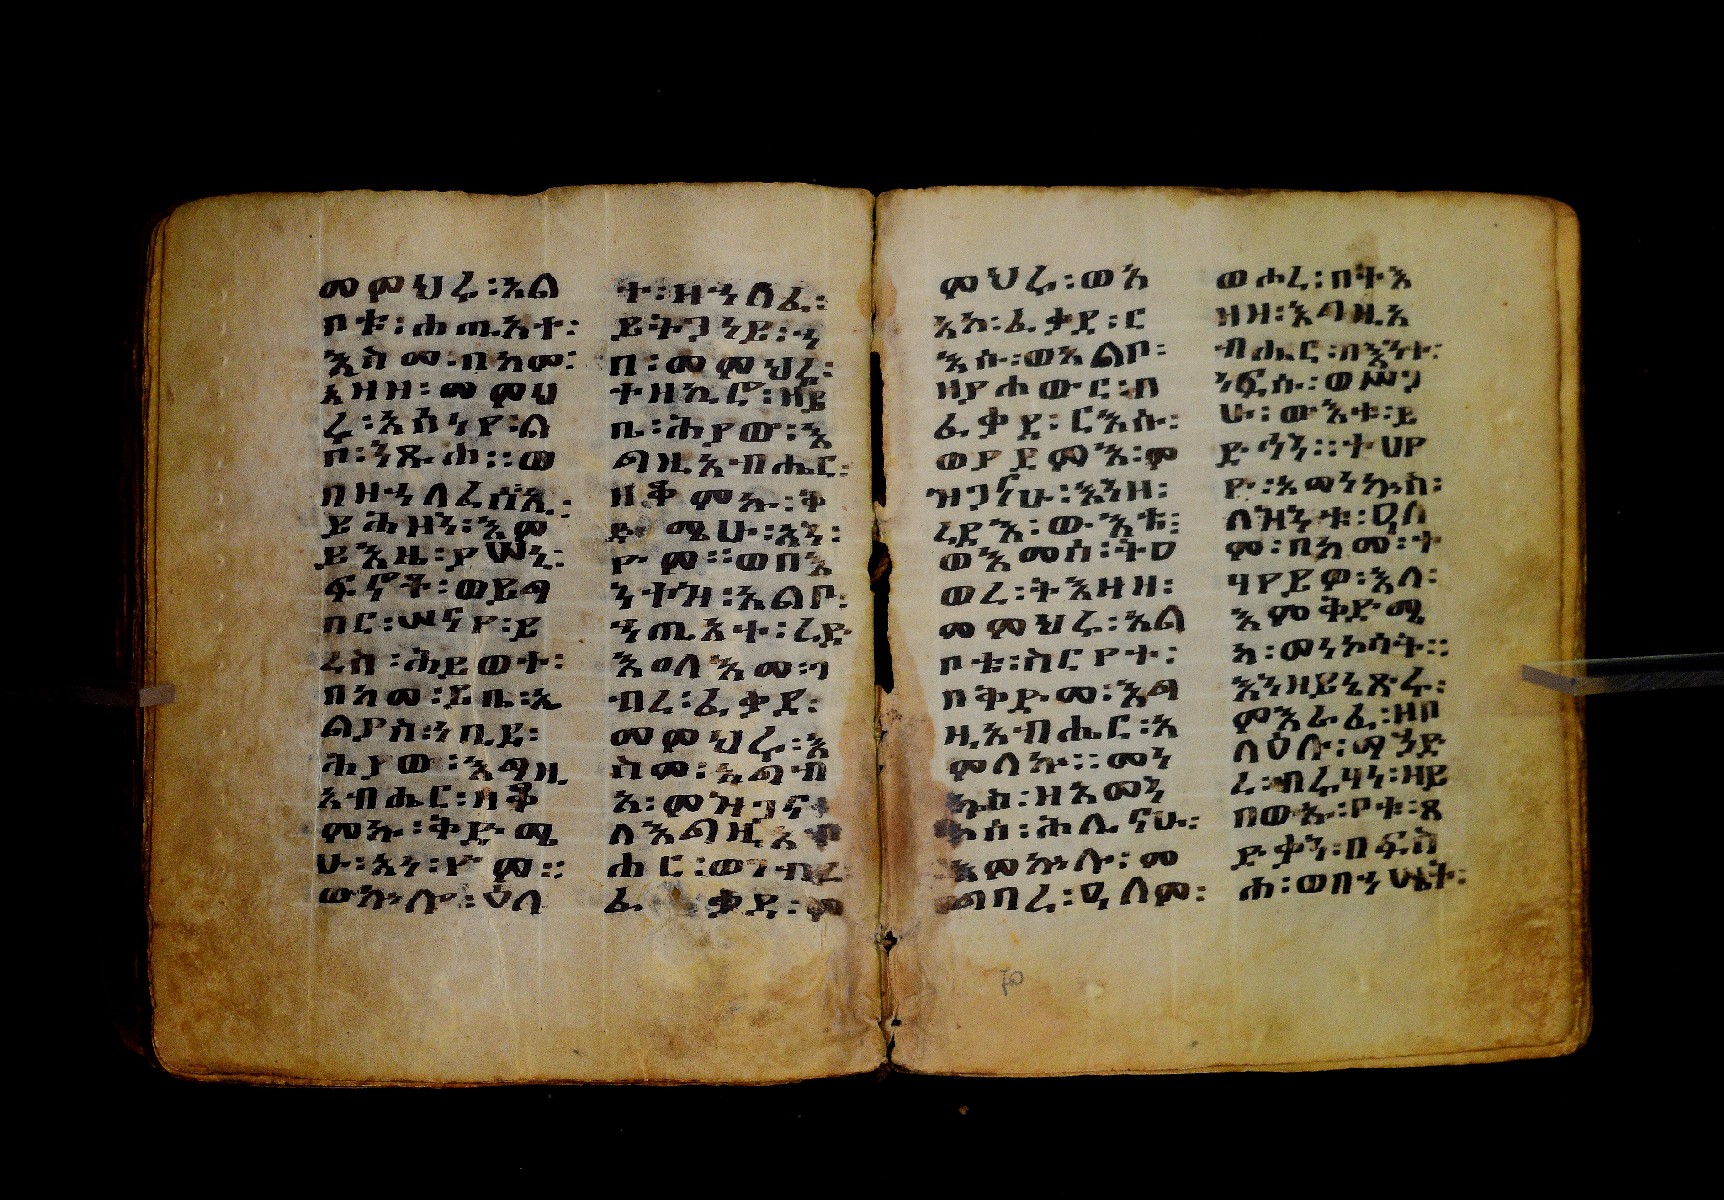 መምህረ፡እል
ቦቱ፡ሐጢአተ፡
እስመ፡በከመ፡
አዘዘ፡መምህ
ረ፡እስነየ፡ል
ቦ፡ንጹሐ፡፡ወ
በዘንለረሰኢ፡
ይሕዘን፡እም
ይእዜ፡ያሠኒ፡
ፍኖት፡ወይግ
በር፡ሠናየ፡ይ
ረስ፡ሕይወተ፡
በከመ፡ይቤ፡ኢ
ልያስ፡ነቢይ፡
ሕያው፡እግዚ
አብሔር፡ዘቆ
ምኩ፡ቅድሜ
ሁ፡አነ፡ዮም፡፡
ወኵሎ፡ዐለ
ተ፡ዘንለፈ፡
ይትጋነይ፡ን
በ፡መምህረ፡
ተዘኪሮ፡ዘይ
ቤ፡ሕያው፡እ
ግዚአብሔር፡
ዘቆምኩ፡ቅ
ድሜሁ፡አነ፡
ዮም፡፡ወበእ
ንተዝ፡አልቦ፡
ኀጢአተ፡ረድ
እ እለእመ፡ገ
ብረ፡ፈቃደ፡
መምህሩ፡እ
ስመ፡ኢግብ
አ፡ምዝጋና
ለእግዚአብ
ሔር፡ወገብረ
ፈቃደ፡መ
ምህሩ፡ወእ
እኮ፡ፈቃደ፡ር
እሱ፡ወአልቦ፡
ዘያሐውር፡በ
ፈቃደ፡ርእሱ፡
ወያደምእ፡ም
ዝጋናሁ፡እንዘ፡
ረድእ፡ውእቱ፡
ወእመሰ፡ትዕ
ወረ፡ትእዛዘ፡
መምህሩ፡አል
ቦቱ፡ስርየተ፡
በቅድመ፡እግ
ዚአብሔር፡አ
ምላኩ፡፡መነ
ኩስ፡ዘእመነ
ኮሰ፡ሕሊናሁ፡
እምኵሉ፡መ
ግበረ፡ዒለም፡
ወሖረ፡በትእ
ዛዘ፡እግዚአ
ብሔር፡በእንተ፡
ነፍሱ፡ወሣህ
ሁ፡ውእቱ፡ይ
ድኅን፡፡ተሀየ
ዮ፡አመንኵስ፡
ለዝንቱ፡ዒለ
ም፡በከመ፡ተ
ሃየይዎ፡እለ፡
እምቅድሜ
ከ፡መነኮሳት፡፡
እንዘይኔጽሩ፡
ምእራፈ፡ዘበ
ለዐሉ፡ማኅድ
ረ፡ብሩሃነ፡ዘይ
በውኡ፡ቦቱ፡ጻ
ድቃን፡በፍስ
ሐ፡ወበኀሤት፡
70